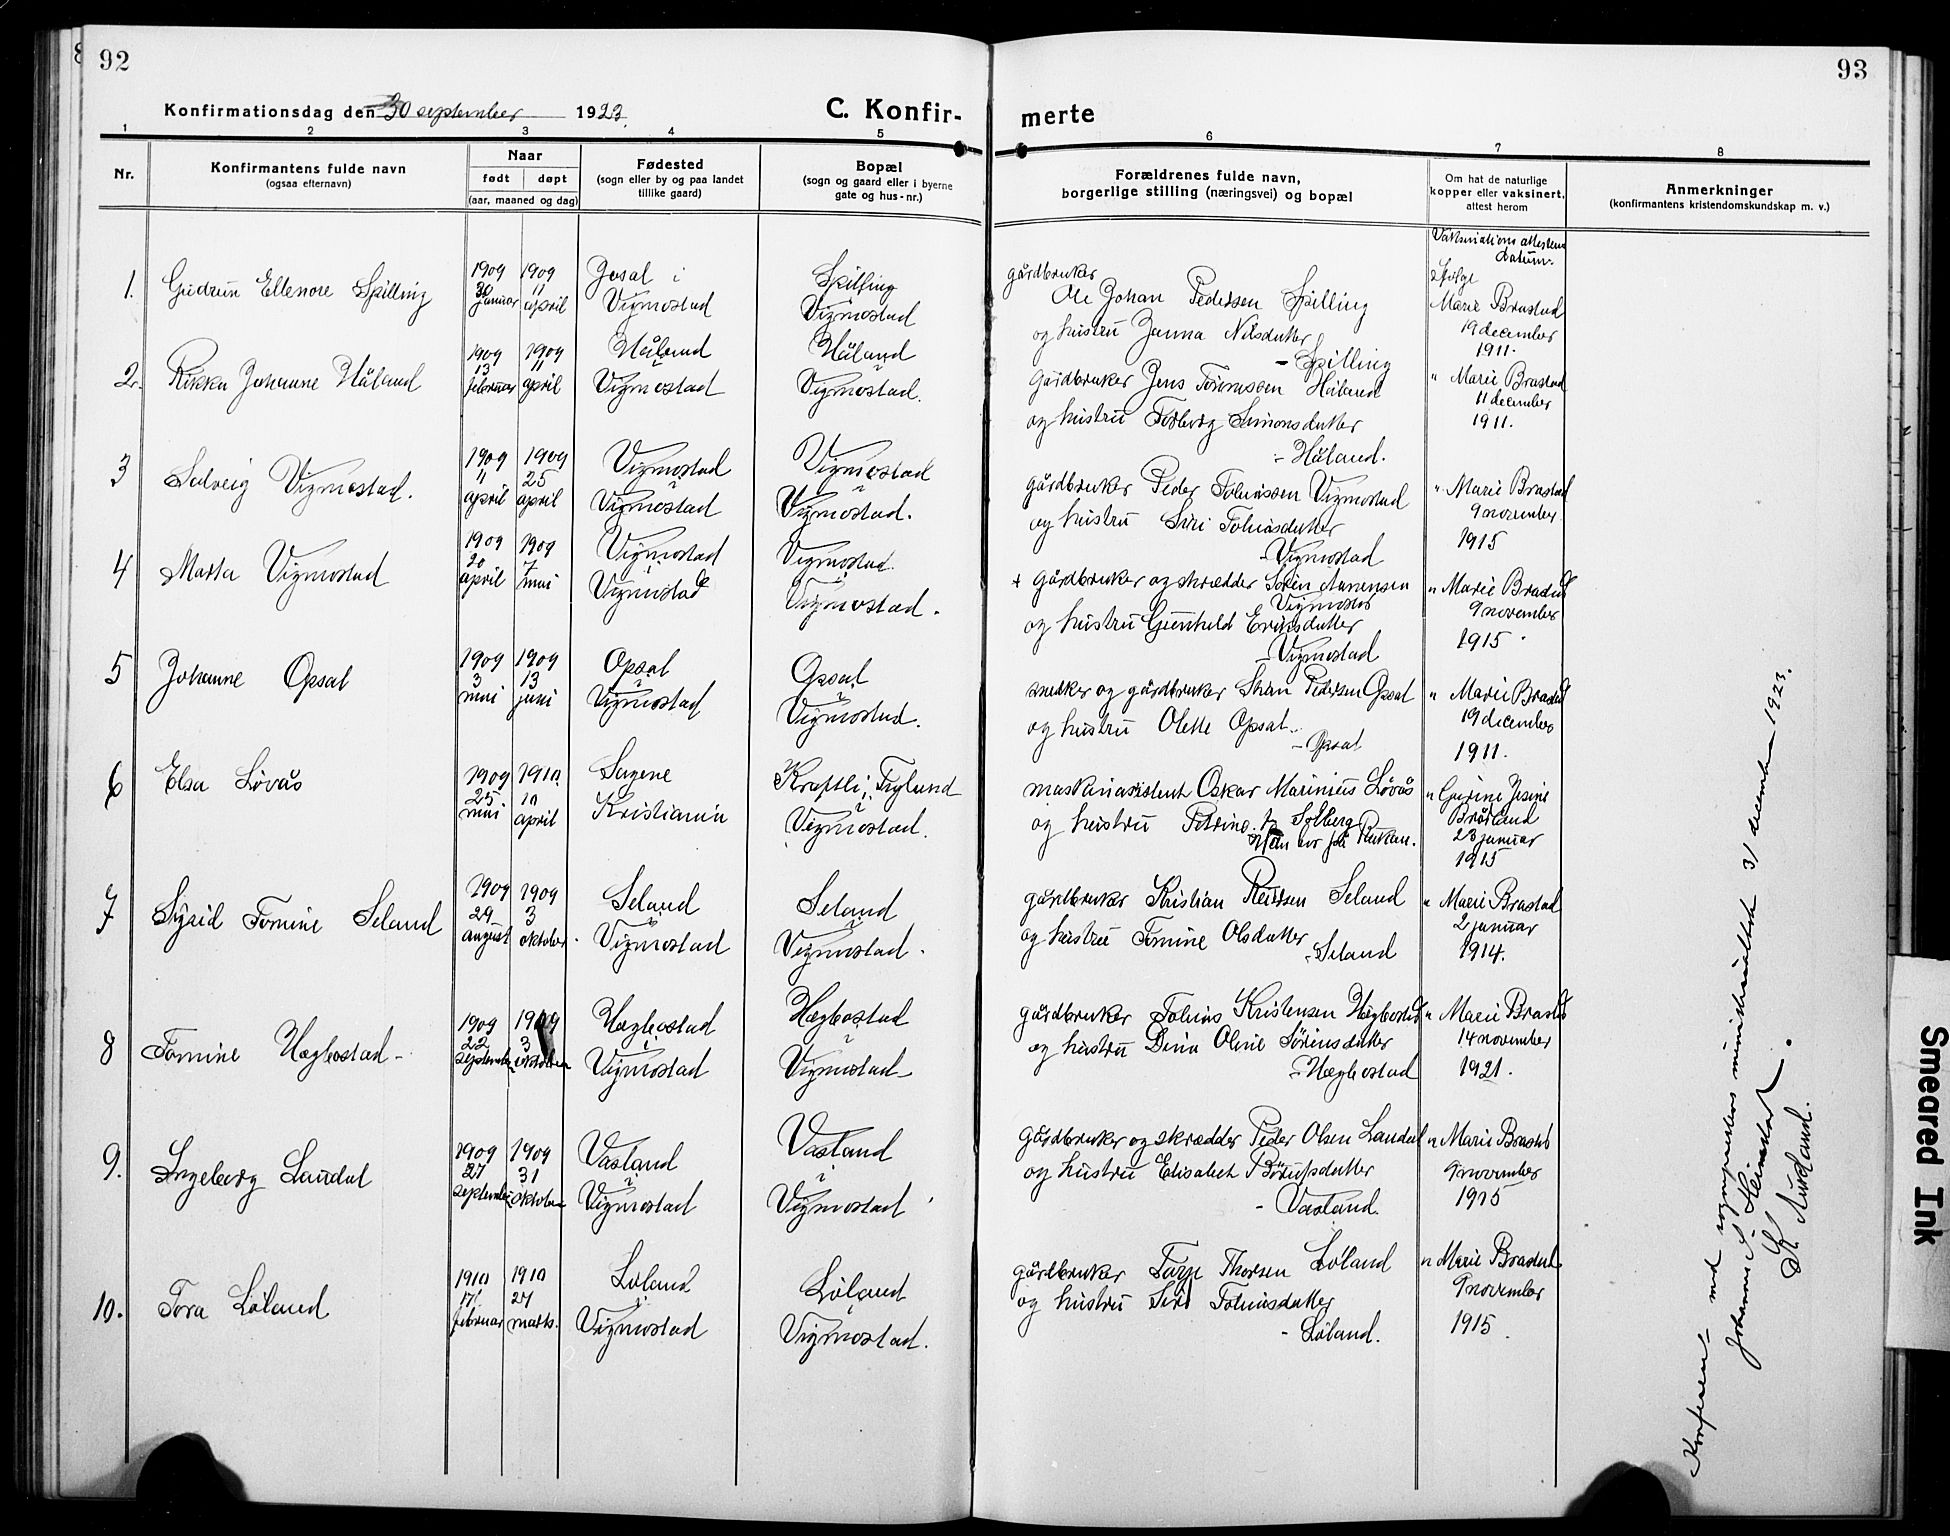 92
93
Konfirmationsdag den 30 september 1923.
C. Konfir-
merte
1 2 3 4 5
6 7 8
Nr.
Konfirmantens fulde navn
(ogsaa efternavn)
Naar
født døpt
(aar, maaned og dag)
Fødested
(sogn eller by og paa landet
tillike gaard)
Bopæl
(sogn og gaard eller i byerne
gate og hus-nr.)
Forældrenes fulde navn,
borgerlige stilling (næringsvei) og bopæl
Om hat de naturlige
kopper eller vaksinert,
attest herom
Anmerkninger
(konfirmantens kristendomskundskap m. v.)
Vaksinations attestens
datum.
1. Gudrun Ellenore Spilling
1909 30 januar
1909 11 april
Josal i
Vigmostad
Spilling
Vigmostad
gårdbruker
Ole Johan Pedersen Spilling
og hustru Janna Nilsdatter
- Spilling
Marie Brastad
19 december
1911.
2. Rikka Johanne Håland
1909 13 februar
1909 11 april
Håland
i
Vigmostad
Håland
i
Vigmostad.
Gårdbruker Jens Håland
og hustru Torborg Simonsdatter
- Håland.
" Marie Brastad
11 december
1911.
3 Solveig Vigmostad.
1909 4 april
1909 25 april
Vigmostad
i
Vigmostad
Vigmostad
i
Vigmostad.
gårdbruker Peder Tobiassen Vigmostad
og hustru Siri Tobiasdatter
- Vigmostad
" Marie Brastad
9 november
1915
4 Marta Vigmostad
1909 20 april
1909 7 mai
Vigmostad
i
Vigmostad
Vigmostad.
i
Vigmostad.
+ gårdbruker og skrædder Søren Aanensen
Vigmostad
og hustru Gunhild Eriksdatter
- Vigmostad
" Marie Brastad
9 november
1915
5 Johanne Opsal
1909 3 mai
1909 13 juni
Opsal
i
Vigmostad
Opsal
i
Vigmostad.
snedker og gårdbruker Pedersen Opsal
og hustru Olette Opsal
- Opsal
" Marie Brastad
19 december
1911.
6 Elsa Løvås
1909 25 mai
1910 10 april
Sagene
Kristiania
Fuglund
i
Vigmostad.
maskinassistent Oskar Marinius Løvås
og hustru Petrine f. Solberg
Rukan.
"
23 januar
1915
7 Sigrid Tomine Seland
1909 29 august
1909 3 oktober.
Seland
i
Vigmostad
Seland
i
Vigmostad.
gårdbruker Kristian Reiersen Seland
og hustru Tomine Olsdatter
- Seland
" Marie Brastad
2 januar
1914.
8 Tomine Hægbostad -
1909 22 september
1909 3 oktober
Hægbostad
i
Vigmostad
Hægbostad
i
Vigmostad
gårdbruker Tobias Kristensen Hægbostad
og hustru Dina Oline Sørensdatter
- Hægbostad
" Marie Brastad
14 november
1921.
9. Ingeborg Laudal
1909 27 september
1909 31 oktober
Vasland
i
Vigmostad
Vasland
i
Vigmostad
gårdbruker og skrædder Peder Olsen Laudal
og hustru Elisabeth Børupsdatter
- Vasland.
" Marie Brastad
9 november
1915
10. Tora Løland
1910 17 februar
1910 27 marts.
Løland
i
Vigmostad
Løland
i
Vigmostad.
gårdbruker Tarje Thorsen Løland
og hustru Siri Tobiasdatter
- Løland.
" Marie Brastad
9 november
1915
Konfereret med sogneprestens ministerialbok 31 december 1923.
Smeared Ink